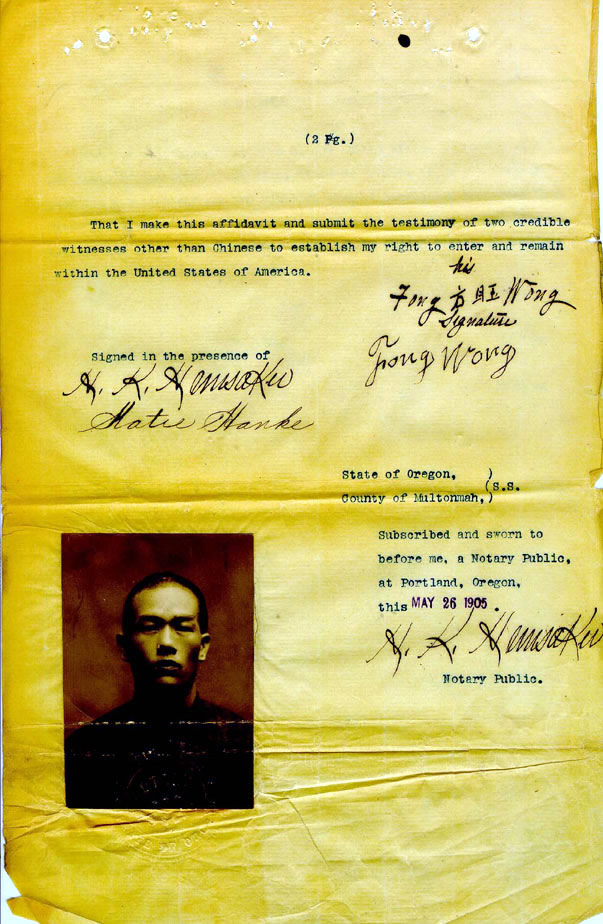 (2 Pg.)
That I make this affidavit and submit the testimony of two credible
witnesses other than Chinese to establish my right to enter and remain
within the United States of America.
his
Fong 方旺 Wong
Signature
Fong Wong
Signed in the presence of
Hanke
State of Oregon, )
(S.S.
County of Multonmah,)
Subscribed and sworn to
before me, a Notary Public,
at Portland, Oregon,
this MAY 26 1905.
Notary Public.